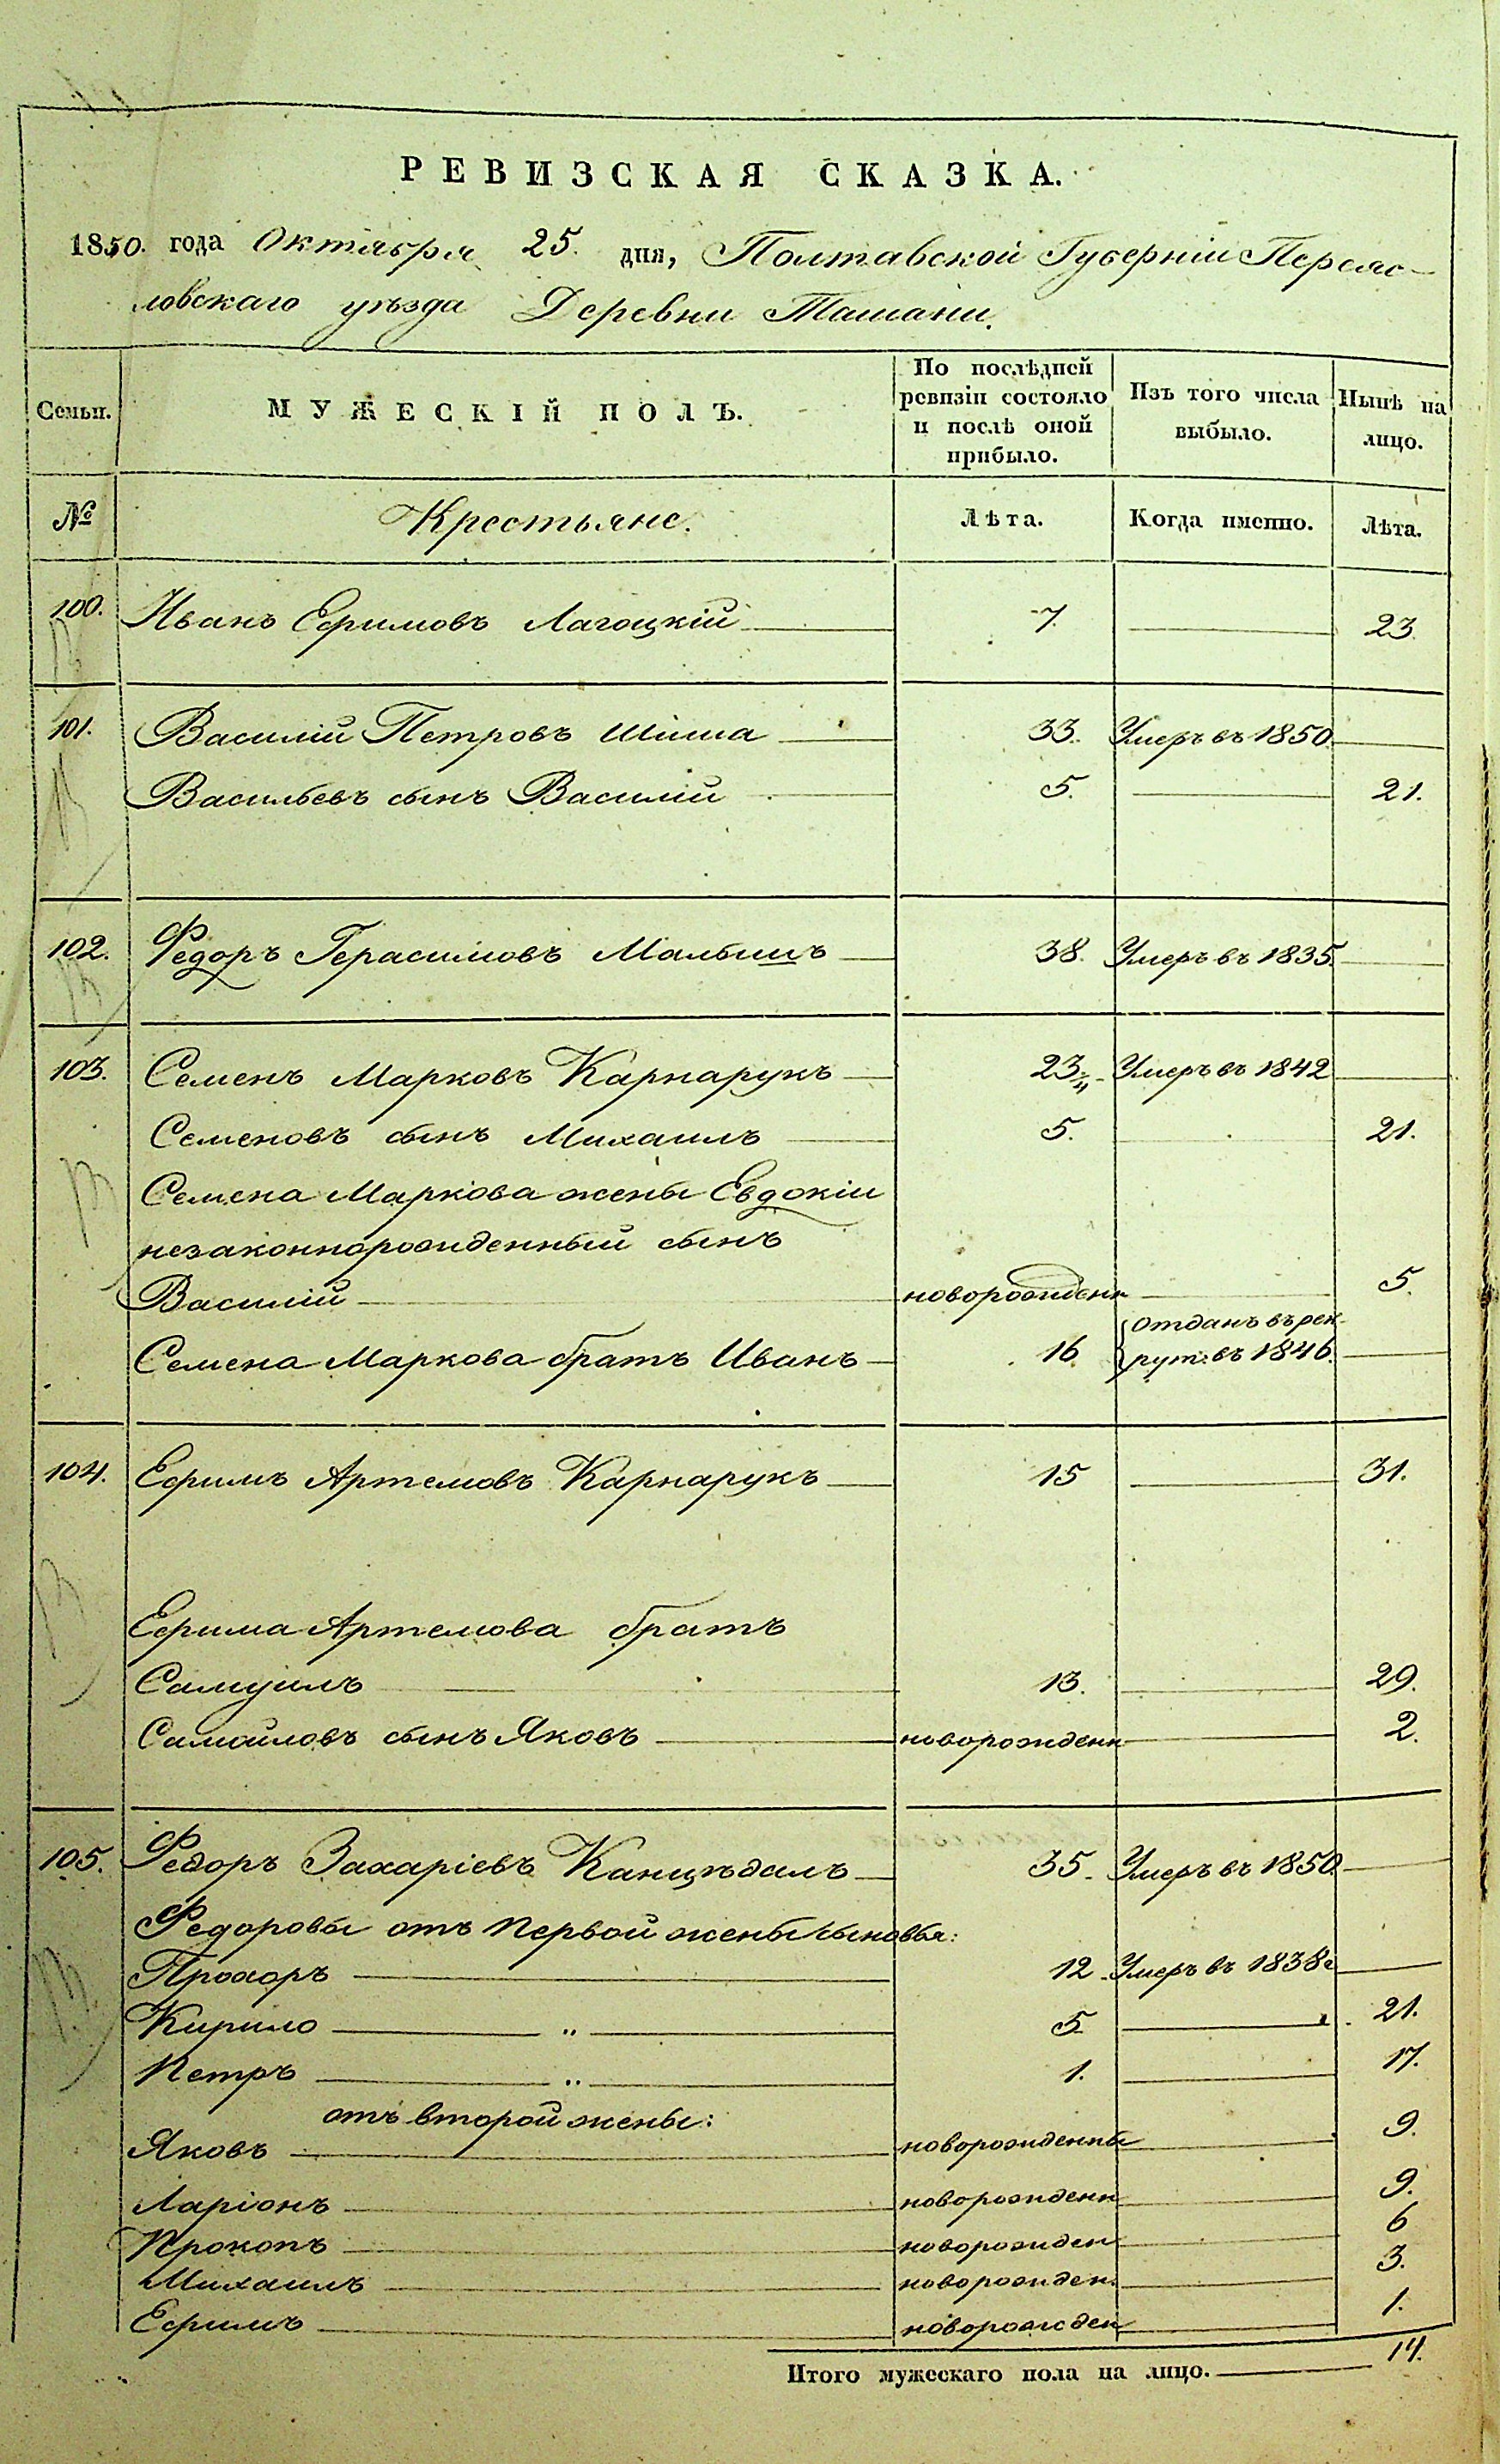 РЕВИЗСКАЯ СКАЗКА.
1850. года Октября 25. дня, Полтавской Губерніи Переяс-
ловскаго уѣзда Деревни Ташани.
Семьи. МУЖЕСКІЙ ПОЛЪ. По послѣдней ревизіи состояло и послѣ оной прибыло. Изъ того числа выбыло. Нынѣ на лицо.
№ Крестьяне. Лѣта. Когда именно. Лѣта.
100. Иванъ Ефимовъ Лагоцкій 7. 23.
101. Василій Петровъ Шіша 33. Умеръ въ 1850.
Васильевъ сынъ Василій 5. 21.
102. Федоръ Герасимовъ Малышъ 38. Умеръ въ 1835.
103. Семенъ Марковъ Карнарукъ 23. Умеръ въ 1842
Семеновъ сынъ Михаилъ 5. 21.
Семена Маркова жены Евдокіи
незаконнорожденный сынъ
Василій новорожденн 5.
Семена Маркова братъ Иванъ 16. отданъ въ рек-
рут: въ 1846.
104. Ефимъ Артемовъ Карнарукъ 15 31.
Ефима Артемова братъ
Самуилъ 13. 29.
Самойловъ сынъ Яковъ новорожденн 2.
105. Федоръ Захаріевъ Канцѣдалъ 35. Умеръ въ 1850
Федоровы отъ первой жены сыновья:
Прохоръ 12. Умеръ въ 1838г
Кирило „ 5. 21.
Петръ „ 1. 17.
отъ второй жены:
Яковъ новорожденны 9.
Ларіонъ новорожденн 9.
Прокопъ новорожден 6
Михаилъ новорожден. 3.
Ефимъ новорожден 1.
Итого мужескаго пола на лицо. 14.